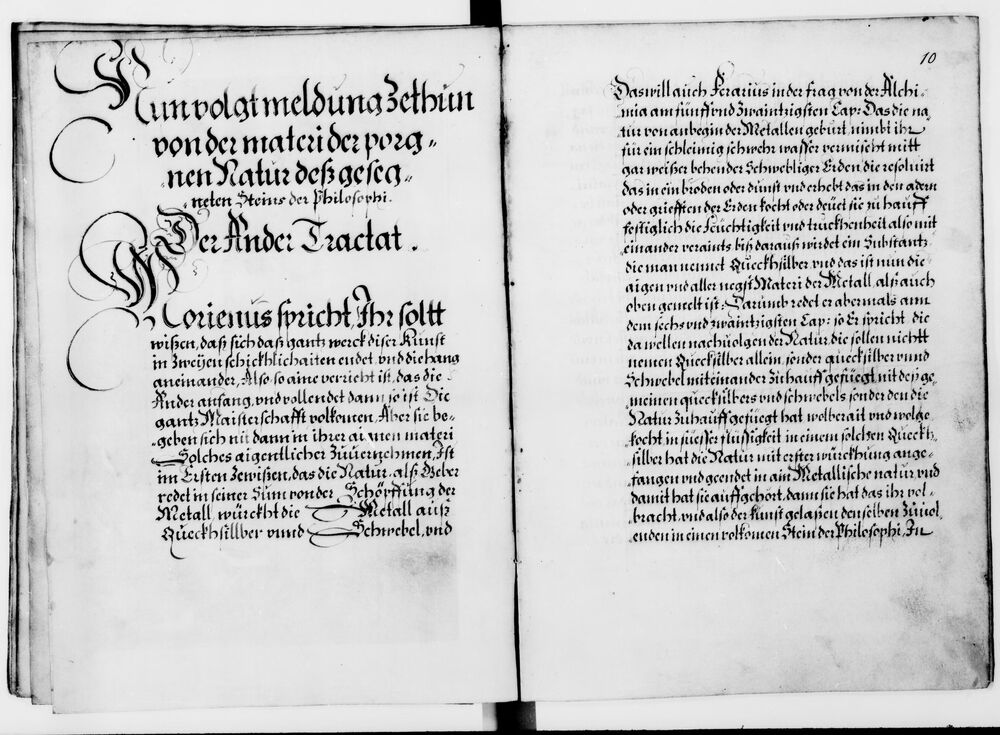 Nun volgt meldung Zethun
von der materi der porg„
nen Natur deß geseg„
neten Steins der Philosophi.
Der Ander Tractat.
Morienus spricht, Ihr soltt
wißen, daß sich daß gantz werck diser Kunst
in Zweyen schickhlichaiten endet, vnd die hang
aneinander, Also so aine verricht ist, das die
Ander anfang, vnd vollendet dann so ist Die
gantz Maisterschafft volkomen, Aber sie be„
geben sich nit dann in ihrer aignen materi
Solches aigentlicher Zuuernehmen, Ist
im Ersten Zewißen, das die Natur, alß Geber
redet in seiner Sum von der Schöpffung der
Metall, würckht die Metall auß
Queckhsillber vnnd Schwebel, vnd
10
Das will auch Ferarius in der frag von der Alchi„
mia am fünff vnd Zwaintzigsten Cap: Das die na„
tur von anbegin der Metallen geburt, nimbt ihr
für ein schleimig schwehr wasser vermischt mitt
gar weißer behender Schwebliger Erden, die resoluirt
das in ein broden oder dunst vnd erhebt das in den adern
oder griefften der Erden kocht oder deuet sie zu hauff
festiglich die Feuchtigkeit vnd truckhenheit also mit
einander veraints biß darauß wirdet ein Substantz
die man nennet Queckhsilber, vnd das ist nun die
aigen vnd aller negst Materi der Metall, alß auch
oben gemelt ist: Darumb redet er abermals am
dem sechs vnd zwaintzigsten Cap: so Er spricht, die
da wellen nachuolgen der Natur, die sollen nichtt
nemen Quecksilber allein, sonder quecksilber vnnd
Schwebel miteinander zu hauff gefüegt, nit deß ge„
meinen quecksilbers vnd schwebels, sonder den die
Natur Zu hauff gefüegt hat, wolberait vnd wolge„
kocht in süesser flüssigkeit, in einem solchen Queckh„
silber hat die Natur mit erster würckhung ange„
fangen vnd geendet in ain Metallische natur, vnd
damit hat sie auffgehört, dann sie hat das ihr vol„
bracht, vnd also der kunst gelaßen denselben Zu uol„
enden in einen volkomen Stein der Philosophi, In